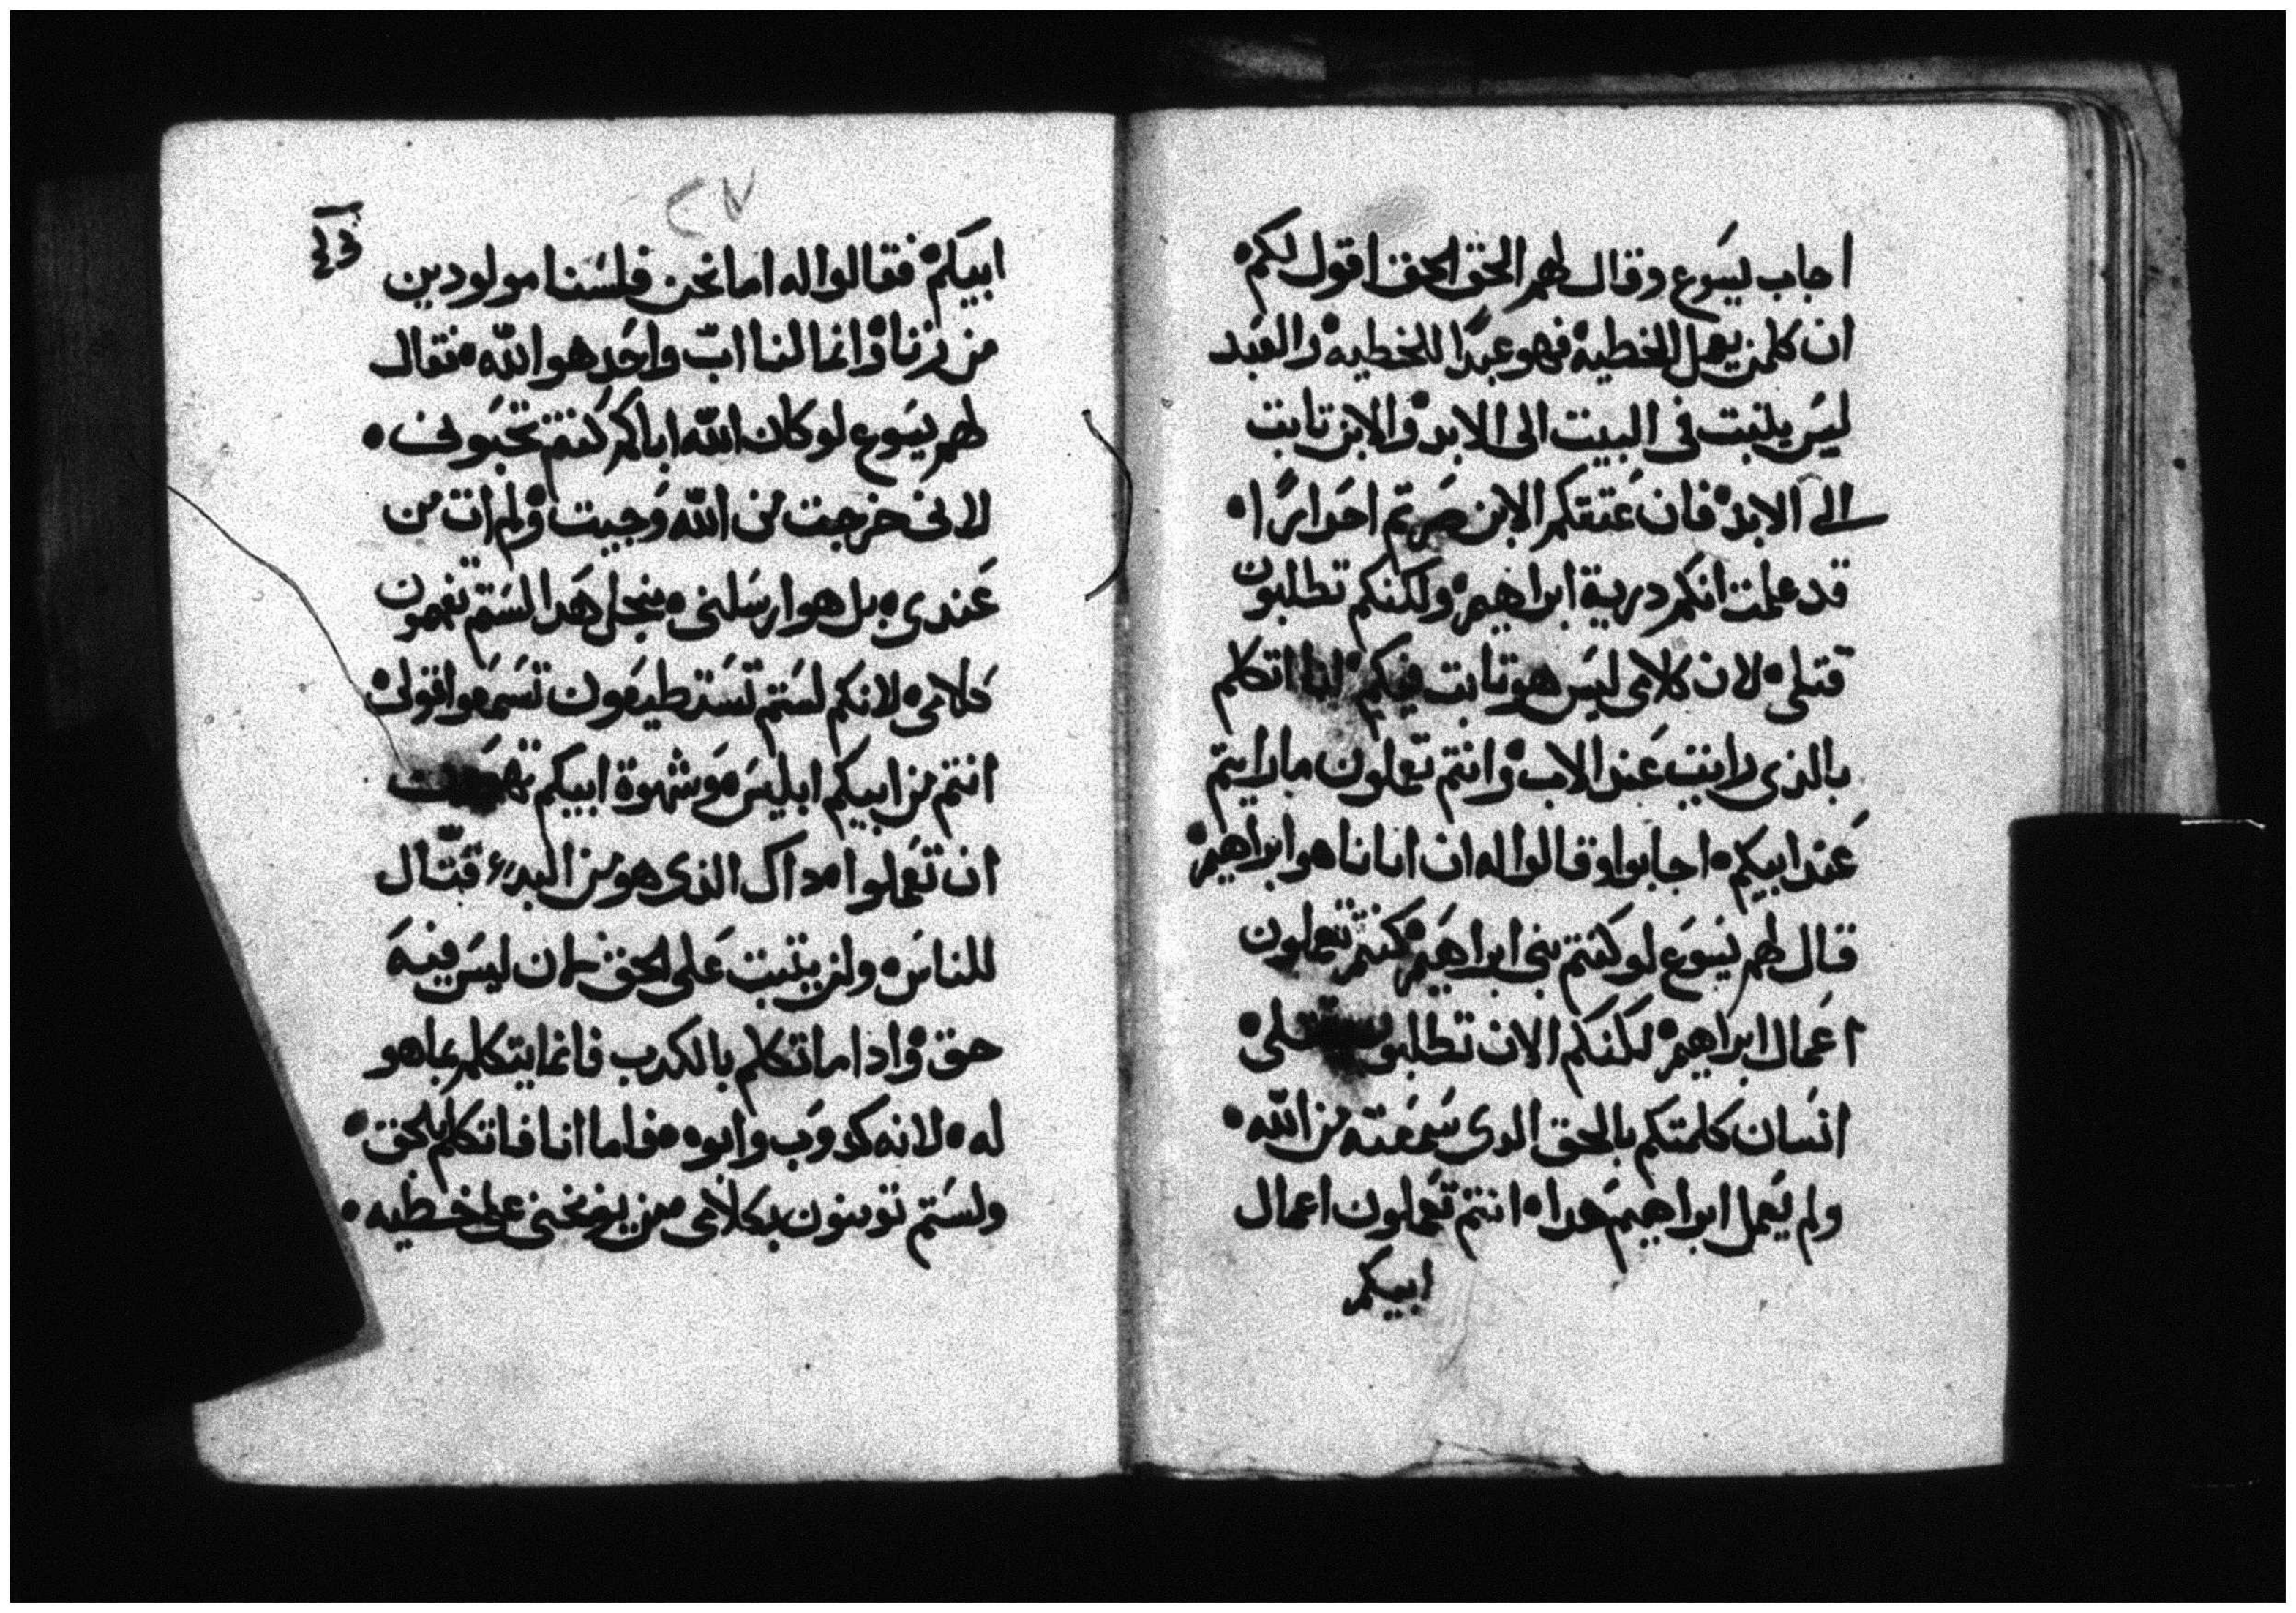 اجاب يسوع وقال لهم الحق الحق اقول لكم
ان كلمن يعمل الخطيه فهو عبدا للخطيه والعبد
ليس يلبت في البيت الى الابد والابن تابت
الى الابد فان عتقكم الابن صرتم احرارا
قد علمت انكم درية ابراهيم ولكنكم تطلبون
قتلى لان كلامى ليس هو تابت فيكم انا اتكلم
بالذى رايت عند الاب وانتم تعملون ما رايتم
عند ابيكم اجابوا وقالوا له ان ابانا هو ابراهيم
قال لهم يسوع لو كنتم بنى ابراهيم كنتم تعملون
اعمال ابراهيم لكنكم الان
انسان كلمتكم بالحق الدى سمعته من الله
ولم يعمل ابراهيم هدا انتم تعملون اعمال
ابيكم
٢٧
ابيكم فقالوا له اما نحن فلسنا مولودين
من زنا وانما لنا اب واحد هو الله فقال
لهم يسوع لو كان الله اباكم كنتم تحبونى
لانى خرجت من الله وجيت ولم ات من
عندى بل هو ارسلنى منجل هدا لستم تفهمون
كلامى لانكم لستم تستطيعون تسمعوا قولى
انتم من ابيكم ابليس وشهوة ابيكم
ان تعملوا داك الذى هو من البدء قتال
للناس ولن يتبت على الحق لان ليس فيه
حق وادا ما تكلم بالكدب فانما يتكلم بما هو
له لانه كدوب وابوه فاما انا فاتكلم بالحق
ولستم تومنون بكلامى من يوبخنى على خطيه